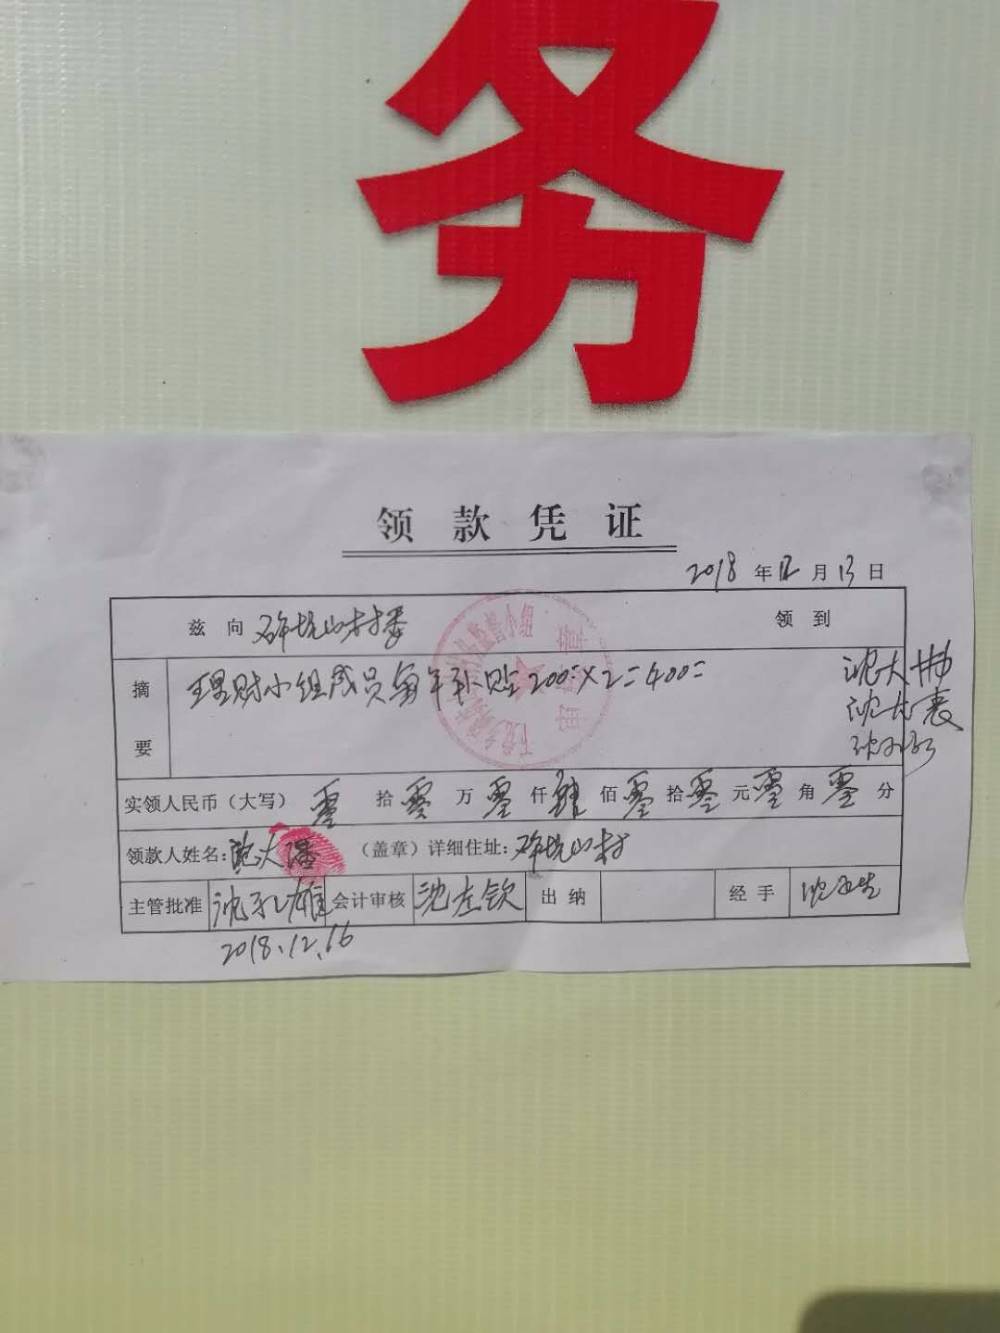 务
领款凭证
2018年12月13日
兹向 山村 领到
摘要 理财小组成员每年补贴200=×2=400=
沈大
沈
实领人民币（大写） 零拾零万零仟肆佰零拾零元零角零分
领款人姓名：沈大 （盖章）详细住址： 山村
主管批准 沈 雄 会计审核 沈左钦 出纳 经手 沈
2018.12.16
监督小组